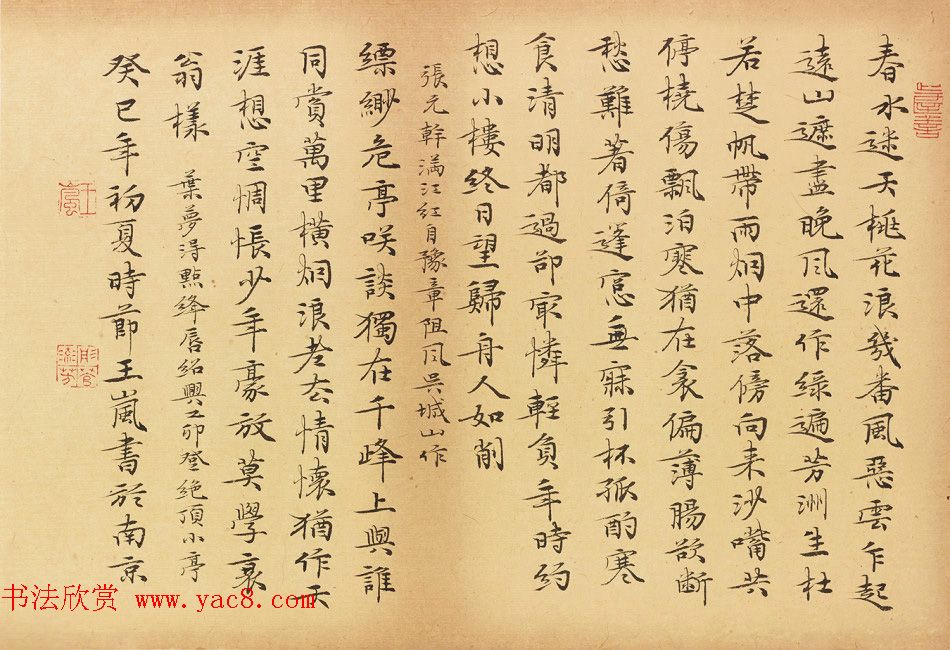 春水迷天桃花浪幾番風惡雲乍起
遠山遮盡晚風還作綠遍芳洲生杜
若楚帆帶雨烟中落傍向来沙嘴共
停橈傷飄泊寒猶在衾偏薄腸欲斷
愁難著倚蓬窓無寐引杯孤酌寒
食清明都過卻㝡憐輕負年時約
想小樓終日望歸舟人如削
張元幹滿江紅自豫章阻風吳城山作
縹緲危亭咲談獨在千峰上與誰
同賞萬里橫烟浪老去情懷猶作天
涯想空惆悵少年豪放莫學衰
翁樣
葉夢得點絳唇紹興乙卯登絶頂小亭
癸巳年初夏時節王嵐書於南京
王嵐
书法欣赏 www.yac8.com